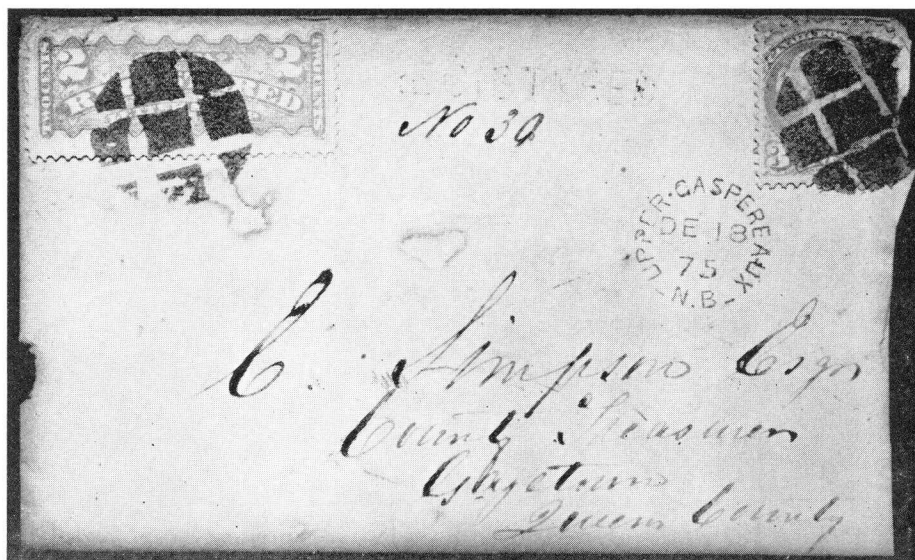 TWO CENTS 2 REGISTERED 2 TWO CENTS
REGISTERED
No 39
UPPER·GASPEREAUX
DE 18
75
N.B
C. Simpson Esqr
County Treasurer
Gagetown
Queens County